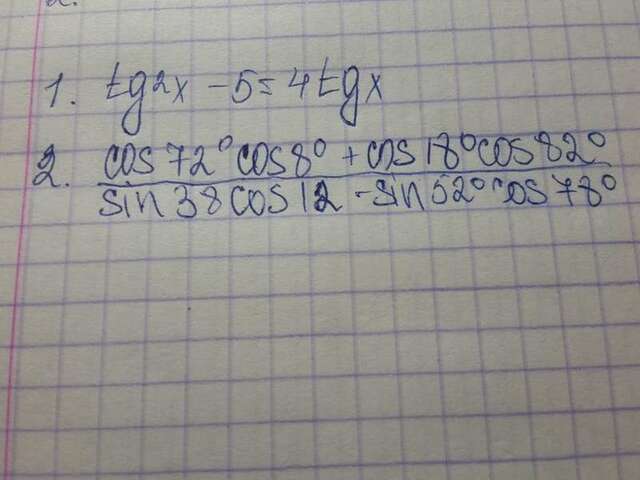 1. tg²x - 5 = 4tgx
2. cos72°cos8° + cos18°cos82°
sin38cos12 - sin52°cos78°